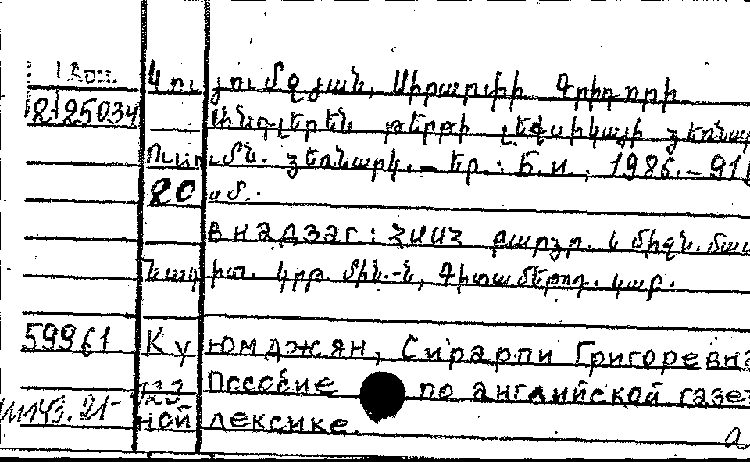 1 Кош. Կույումջյան, Սիրարփի Գրիգորի
8125034 Անգլերեն թերթի լեքսիկայի ձեռնար
Ուսում. ձեռնարկ. – Եր. : Б.и., 1986. – 91
80
В надзаг: ՀՍՍՀ բարձր. և միջն. մաս
նագիտ. կրթ. մին.-ն, Գիտամեթոդ. կաբ.
59961 Куюмджян, Сирарпи Григоревна
Пособие по английской газет
ной лексике.
а